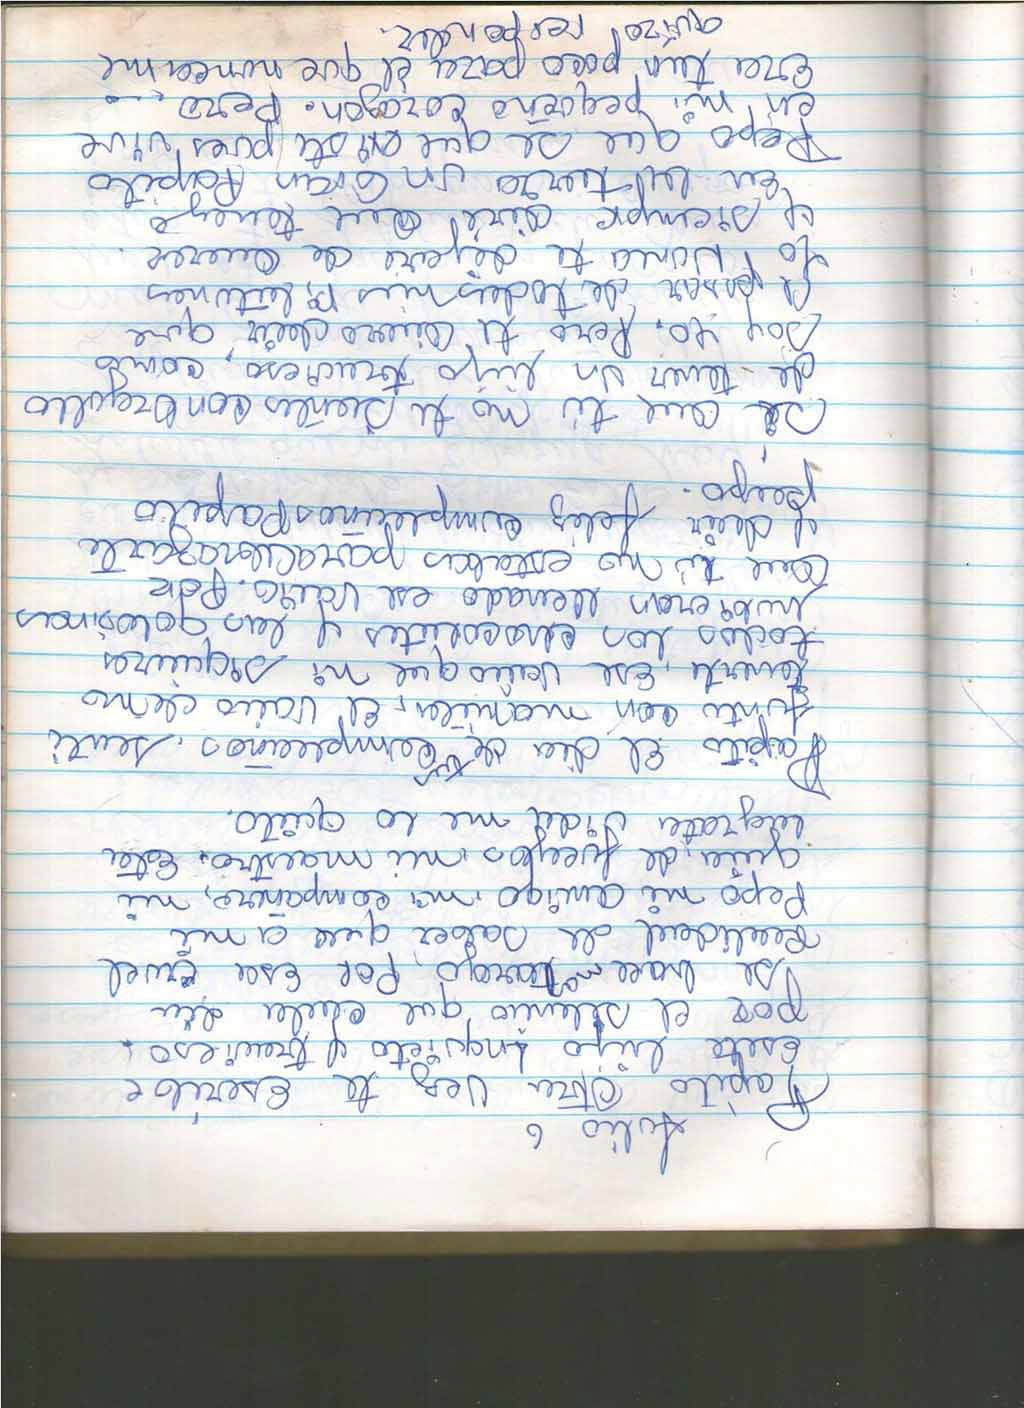 Julio 6
Papito Otra vez te Escribe
Este hijo inquieto y travieso.
por el silencio que cada dia
se hace mas largo, Por Esa Cruel
Realidad de saber que a mi
Pepo mi amigo, mi compañero, mi
guia, de juegos, mi maestro. Esta
ingrata vida me lo quito.
Papito El dia de tu cumpleaños, senti
junto con mamita, El vacio de no
tenerte, Ese vacio que ni siquiera
todos los chocolates y las golosinas
hubieran llenado ese vacio. Por
Que tú no estabas para abrazarte
y decir feliz cumpleaños Papito
pepo.
Sé Que tú no te sientes con orgullo
de tener un hijo travieso, como
Soy Yo, Pero te Quiero decir que
a pesar de todas mis
Yo Nunca te dejare de Querer
y siempre diré Que tengo
En la tierra Un Gran Papito
Pepo que se que existe pues vive
en mi pequeño corazon. Pero ...
Eras tan poco para el que nunca me
quizo responder.